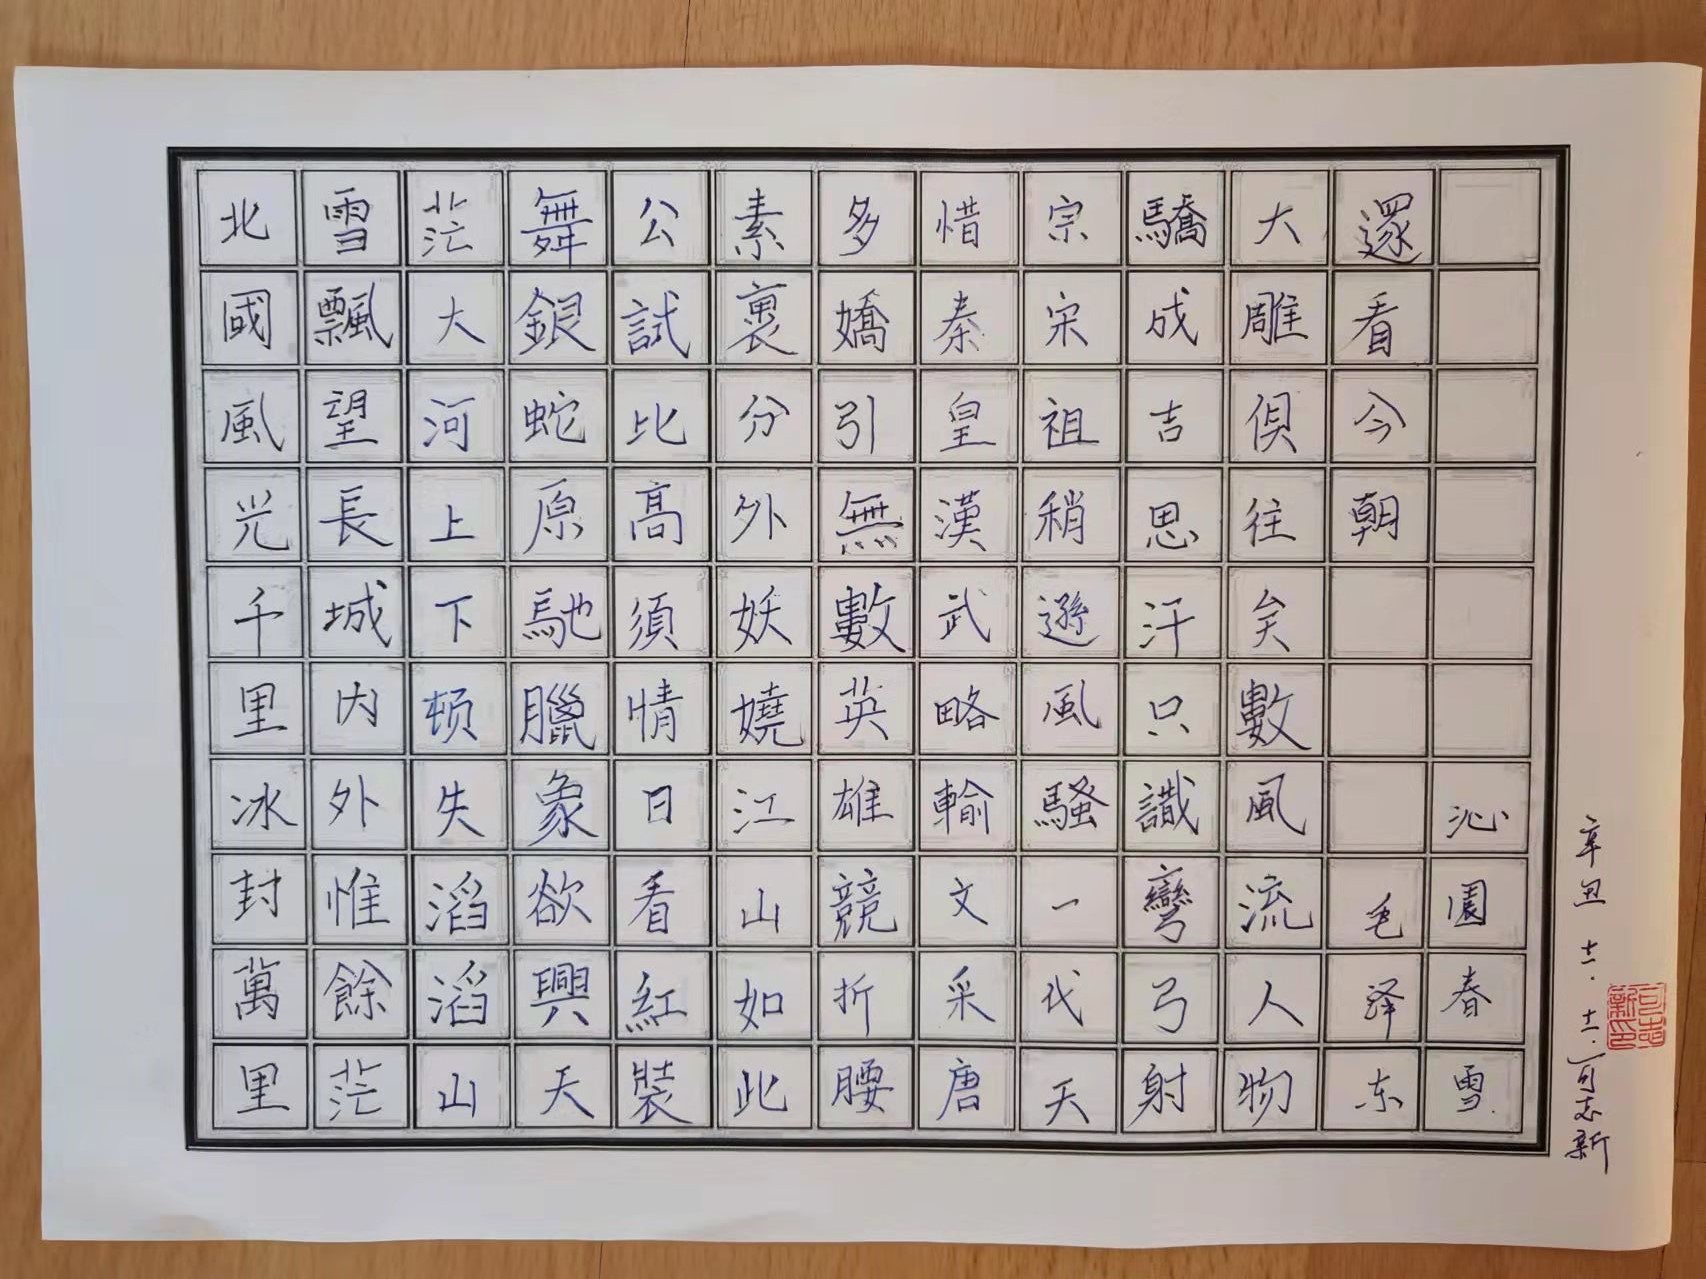 北國風光千里冰封萬里
雪飄望長城内外惟餘茫
茫大河上下顿失滔滔山
舞銀蛇原馳臘象欲興天
公試比高須情日看紅裝
素裹分外妖嬈江山如此
多嬌引無數英雄競折腰
惜秦皇漢武略輸文采唐
宗宋祖稍遜風騷一代天
驕成吉思汗只識彎弓射
大雕俱往矣數風流人物
還看今朝 毛泽东
沁園春雪
辛丑 司志新
司志新印